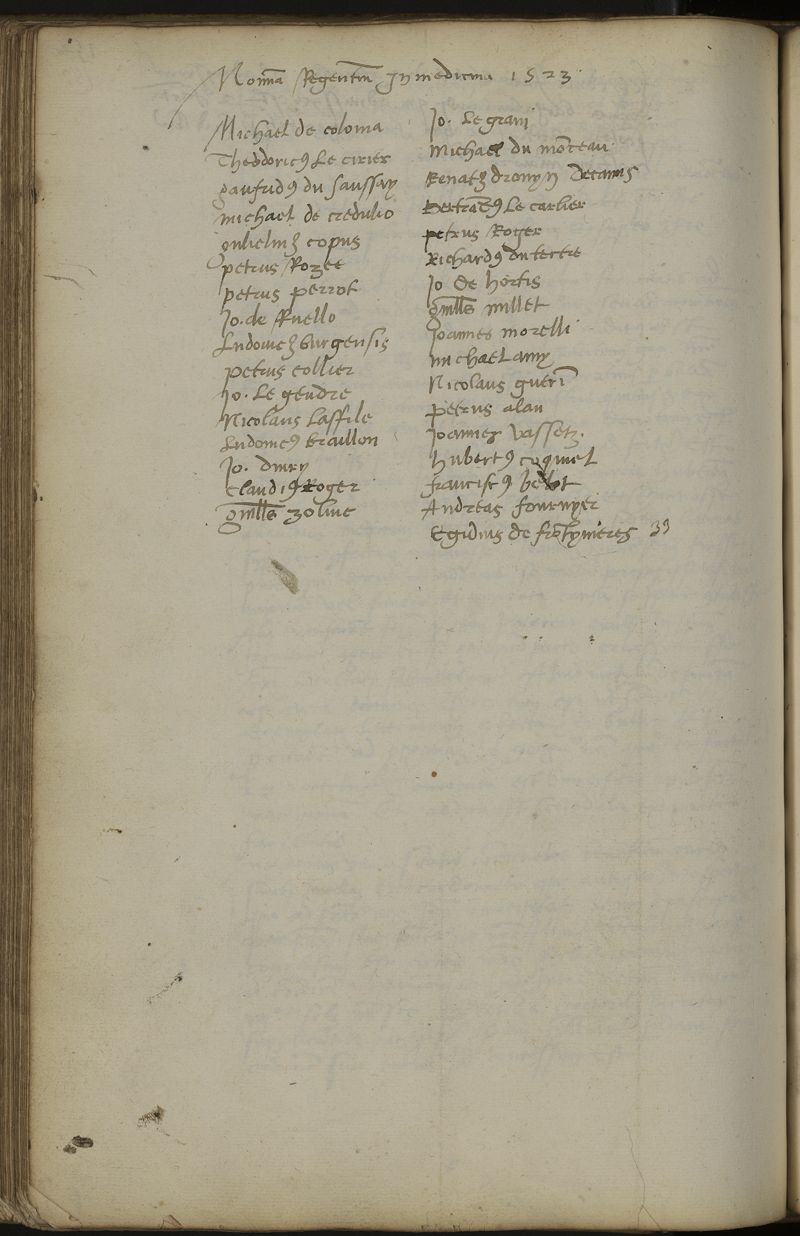 Nomĩa Regentiũ In medicina 1523
Michael de coloma
Theodoricꝰ Le cirier
gaufridꝰ du saussay
michael de credulio
gulielmꝰ copus
petrus Rozee
petrus perrot
Jo. de Ruello
Ludovicꝰ burgensis
petrus collier
Jo. Le gendre
Nicolaus Laffile
Ludovicꝰ braillon
Jo.
Claudiꝰ Roger
Guill̃s
Jo. Le grain
Michael du mõceau
Renatꝰ drouyn Decanus
Bertrãdꝰ Le carlier
petrus Roger
Richardꝰ du tertre
Jo De hortis
guill̃s millet
Joannes morelli
michael amy
Nicolaus guerĩ
petrus alan
Joannes Vassetz.
hubertꝰ coquiel
franciscꝰ
Andreas fournyer
Egidius de 33